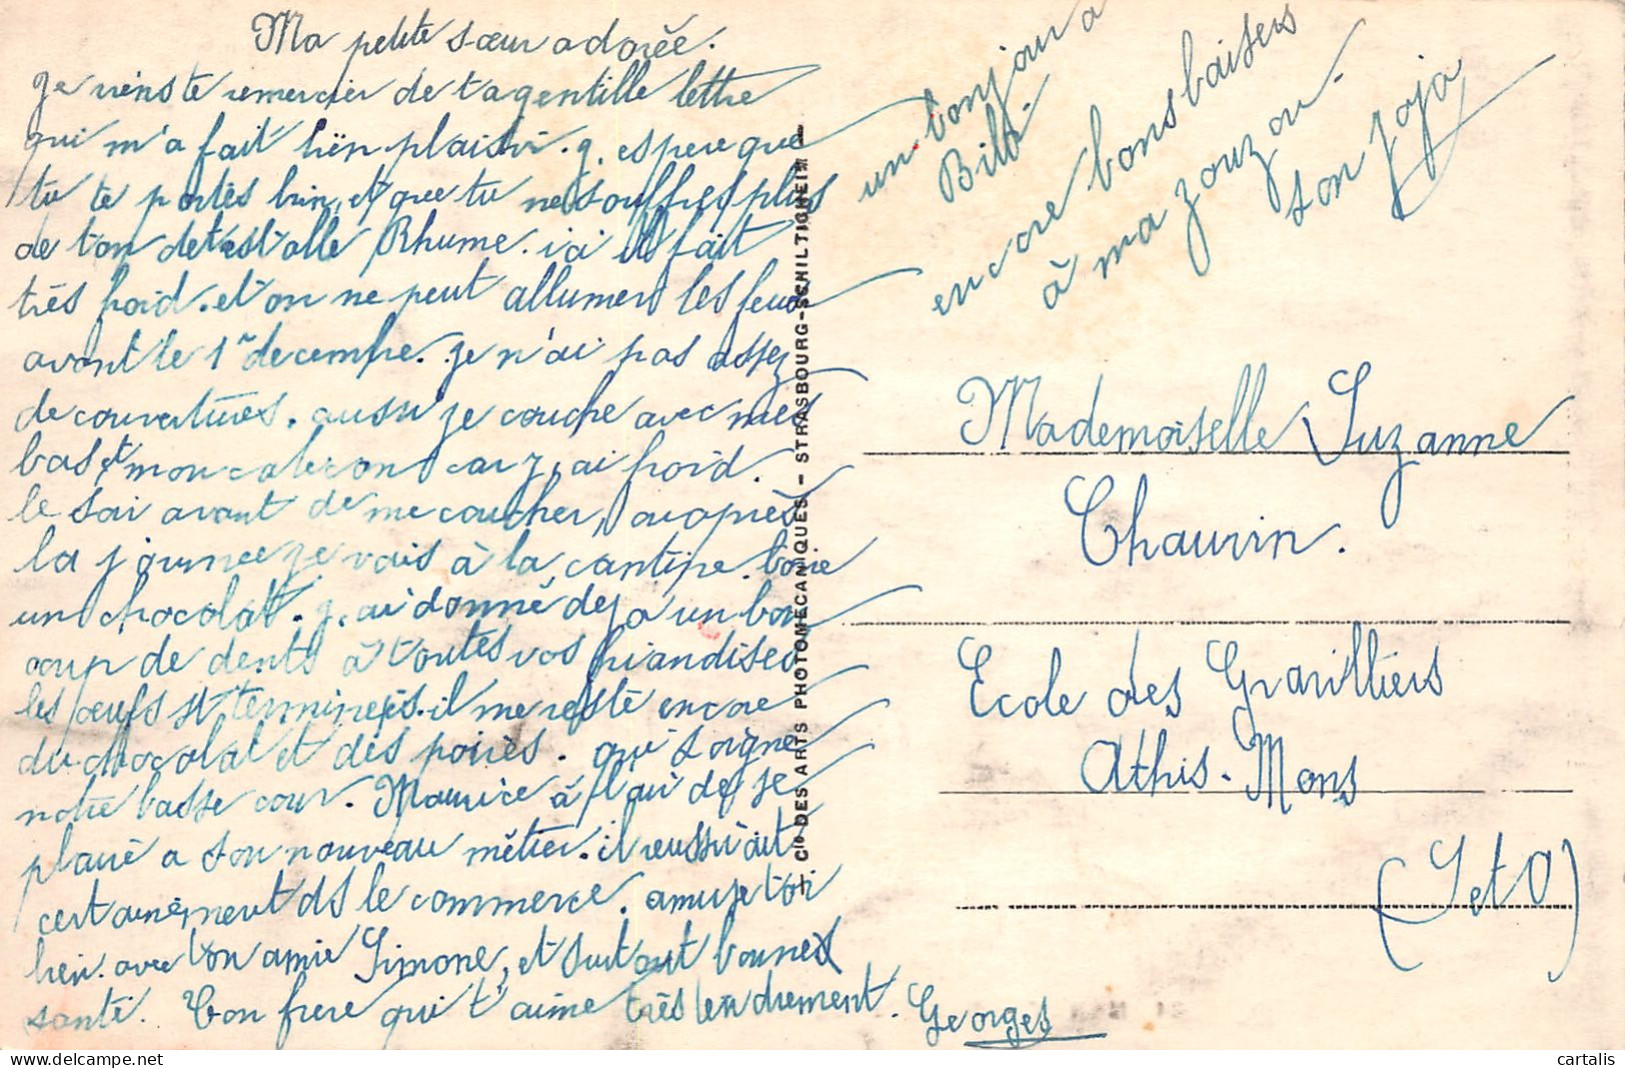 Ma petite sœur adorée.
Je viens te remercier de ta gentille lettre
qui m'a fait bien plaisir. j, espere que
tu te portes bien, et que tu ne souffres plus
de ton detestable Rhume. ici il fait
très froid. et on ne peut allumer les feux
avant le 1er decembre. je n'ai pas assez
de couvertures. aussi je couche avec mes
bas et mon caleçon car j, ai froid.
le soir avant de me coucher, ou après
la journee je vais à la cantine boire
un chocolat. j, ai donné deja un bon
coup de dents à toutes vos friandises
les œufs st terminés. il me reste encore
du chocolat et des poires. qui soigne
notre basse cour. Maurice à l'air de se
plaire a son nouveau métier. il reussirait
certainement ds le commerce. amuse toi
bien. avec ton amie Simone, et surtout bonnes
santé. Ton frere qui t'aime très tendrement. Georges
un bonjour à
Bild.
encore bons baisers
à ma zouzou.
ton Jojo
Cie DES ARTS PHOTOMECANIQUES - STRASBOURG-SCHILTIGHEIM
Mademoiselle Suzanne
Chauvin.
Ecole des Gravilliers
Athis-Mons
(S et O)
cartalis